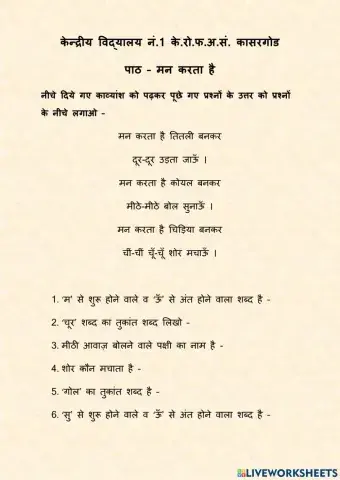 केन्द्रीय विद्यालय नं.1 के.रो.फ.अ.सं. कासरगोड
पाठ – मन करता है
नीचे दिये गए काव्यांश को पढ़कर पूछे गए प्रश्नों के उत्तर को प्रश्नों
के नीचे लगाओ –
मन करता है तितली बनकर
दूर-दूर उड़ता जाऊँ ।
मन करता है कोयल बनकर
मीठे-मीठे बोल सुनाऊँ ।
मन करता है चिड़िया बनकर
चीं-चीं चूँ-चूँ शोर मचाऊँ ।
1. 'म' से शुरू होने वाले व 'ऊँ' से अंत होने वाला शब्द है –
2. 'चूर' शब्द का तुकांत शब्द लिखो –
3. मीठी आवाज़ बोलने वाले पक्षी का नाम है –
4. शोर कौन मचाता है –
5. 'गोल' का तुकांत शब्द है –
6. 'सु' से शुरू होने वाले व 'ऊँ' से अंत होने वाला शब्द है –
LIVEWORKSHEETS